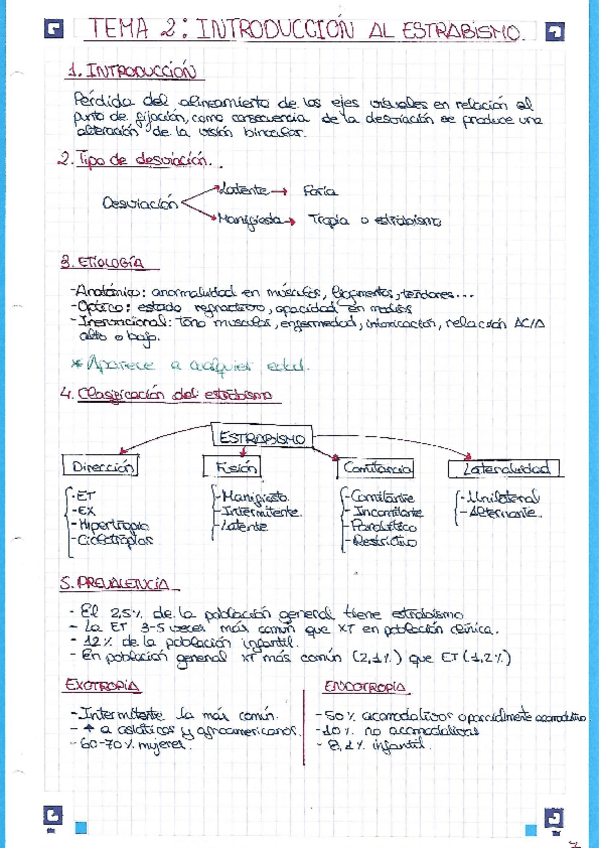 TEMA 2: INTRODUCCIÓN AL ESTRABISMO.
1. INTRODUCCIÓN
Pérdida del alineamiento de los ejes visuales en relación al
punto de fijación, como consecuencia de la desviación se produce una
alteración de la visión binocular.
2. Tipo de desviación.
Latente → Foria
Desviación
Manifiesta → Tropia o estrabismo
3. ETIOLOGÍA
- Anatómica: anormalidad en músculos, ligamentos, tendones...
- Óptico: estado refractivo, opacidad en medios
- Inervacional: Tono muscular, enfermedad, intoxicación, relación AC/A
alto o bajo.
* Aparece a cualquier edad.
4. Clasificación del estrabismo
ESTRABISMO
Dirección Fusión Comitancia Lateralidad
- ET - Manifiesto. - Comitante - Unilateral
- EX - Intermitente. - Incomitante - Alternante.
- Hipertropia - Latente - Paralítico
- Ciclotropias - Restrictivo
5. PREVALENCIA
- El 2,5% de la población general tiene estrabismo
- La ET 3-5 veces más común que XT en población clínica.
- 12% de la población infantil.
- En población general XT más común (2,1%) que ET (1,2%)
EXOTROPIA ENDOTROPIA
- Intermitente la más común. - 50% acomodativos o parcialmente acomodativo
- + a asiáticos y afroamericanos. - 10% no acomodativas
- 60-70% mujeres. - 8,2% infantil.